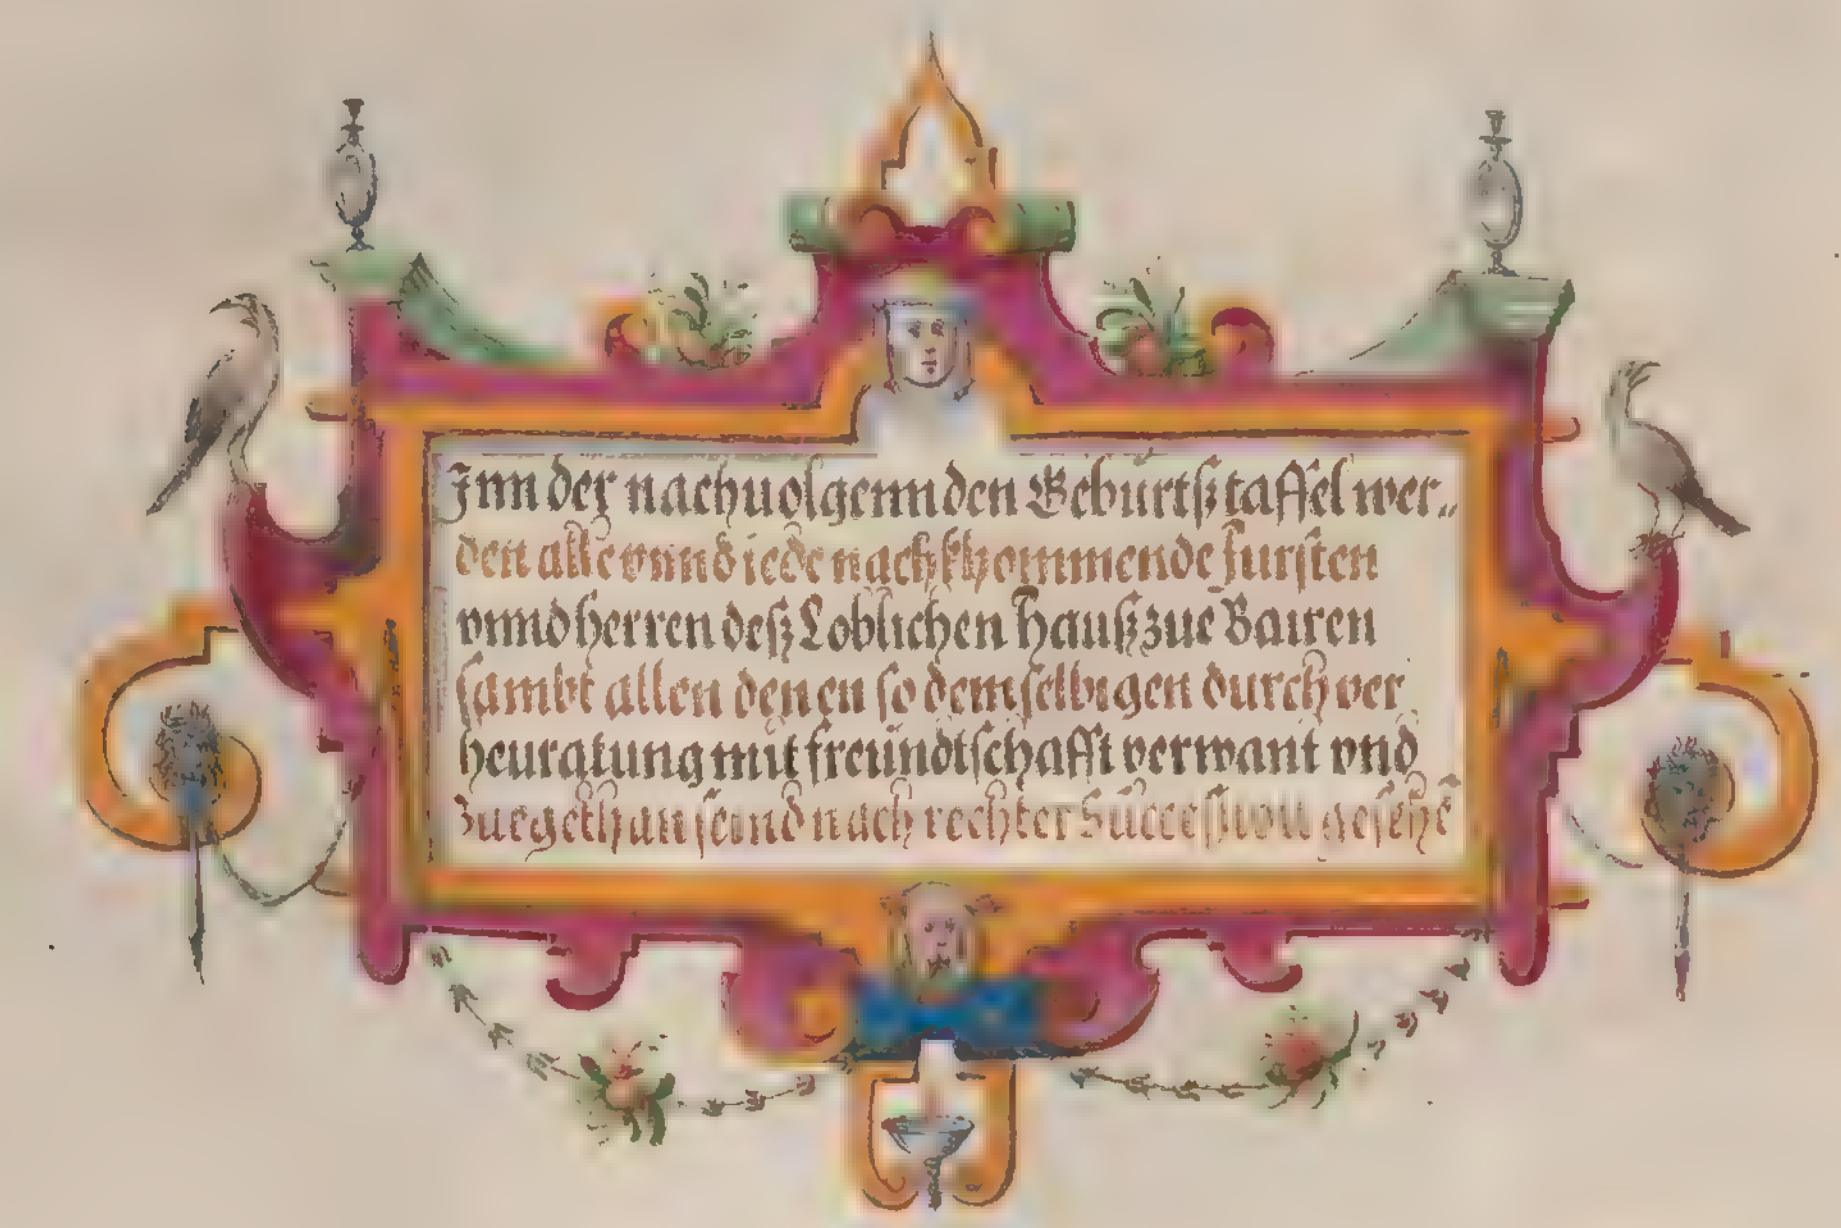 Inn der nachuolgennden Geburtsstaffel wer„
den alle vnnd iede nachkhommende fursten
vnnd herren desz Loblichen Hausz zue Bairen
sambt allen denen so demselbigen durch ver
heuratung mit freundtschafft verwant vnd
Zuegethan seind nach rechter Succession gesetzt